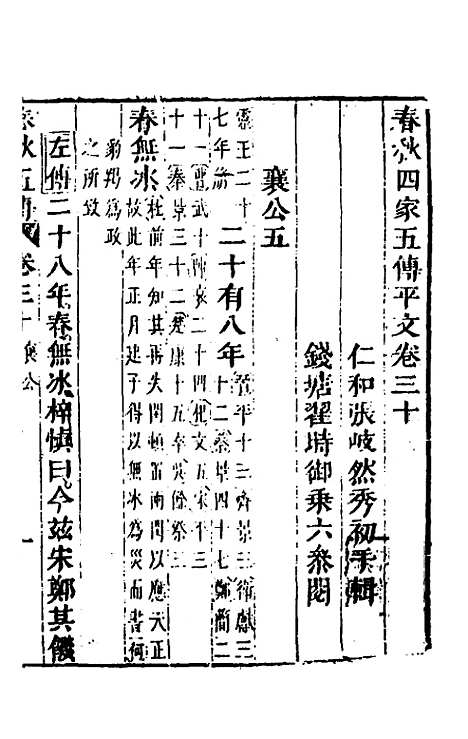 春秋四家五傳平文卷三十
仁和張岐然秀初手輯
錢塘翟時御乘六參閱
襄公五
靈王二十七年
二十有八年
晉平十三齊景三衛獻三
十二蔡景四十七鄭簡二
十一曹武十陳哀二十四杞文五宋平三
十一秦景三十二楚康十五卒吳餘祭三
春無冰
杜前年知其再失閏頓置兩閏以應天正
故此年正月建子得以無冰為災而書何
豹羯為政
之所致
左傳二十八年春無冰梓慎曰今茲宋鄭其饑
春秋五傳 卷三十 襄公 一